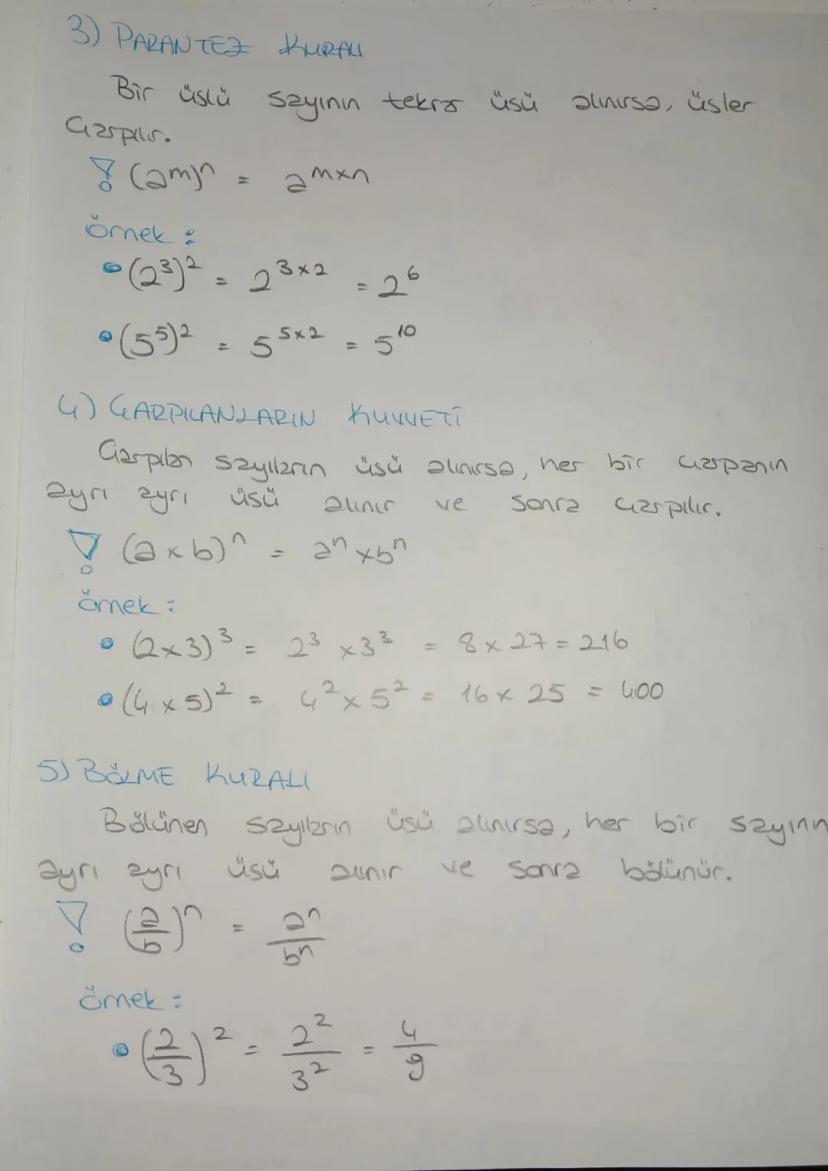 3) PARANTEZ KURALI
Bir üslü sayının tekrar üsü alınırsa, üsler
Çarpılır.
! (a^m)^n = a^m×n
örnek :
• (2^3)^2 = 2^3×2 = 2^6
• (5^5)^2 = 5^5×2 = 5^10
4) ÇARPILANLARIN KUVVETİ
Çarpılan sayıların üsü alınırsa, her bir çarpanın
ayrı ayrı üsü alınır ve sonra çarpılır.
! (a × b)^n = a^n × b^n
örnek :
• (2×3)^3 = 2^3 × 3^3 = 8 × 27 = 216
• (4 × 5)^2 = 4^2 × 5^2 = 16 × 25 = 400
5) BÖLME KURALI
Bölünen sayıların üsü alınırsa, her bir sayının
ayrı ayrı üsü alınır ve sonra bölünür.
! (a/b)^n = a^n/b^n
örnek :
• (2/3)^2 = 2^2/3^2 = 4/9